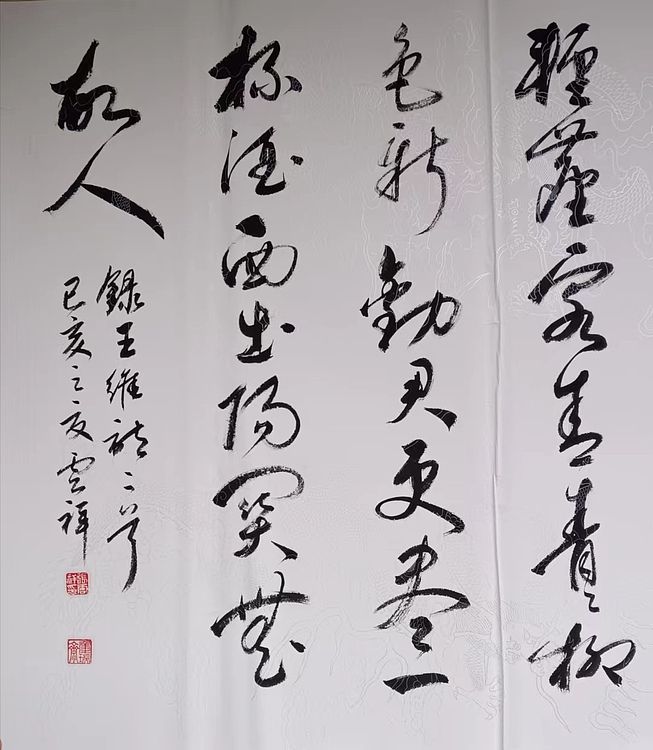 輕塵客舍青々柳
色新勸君更盡一
杯酒西出陽關無
故人
錄王維詩二首
己亥之夏雲祥